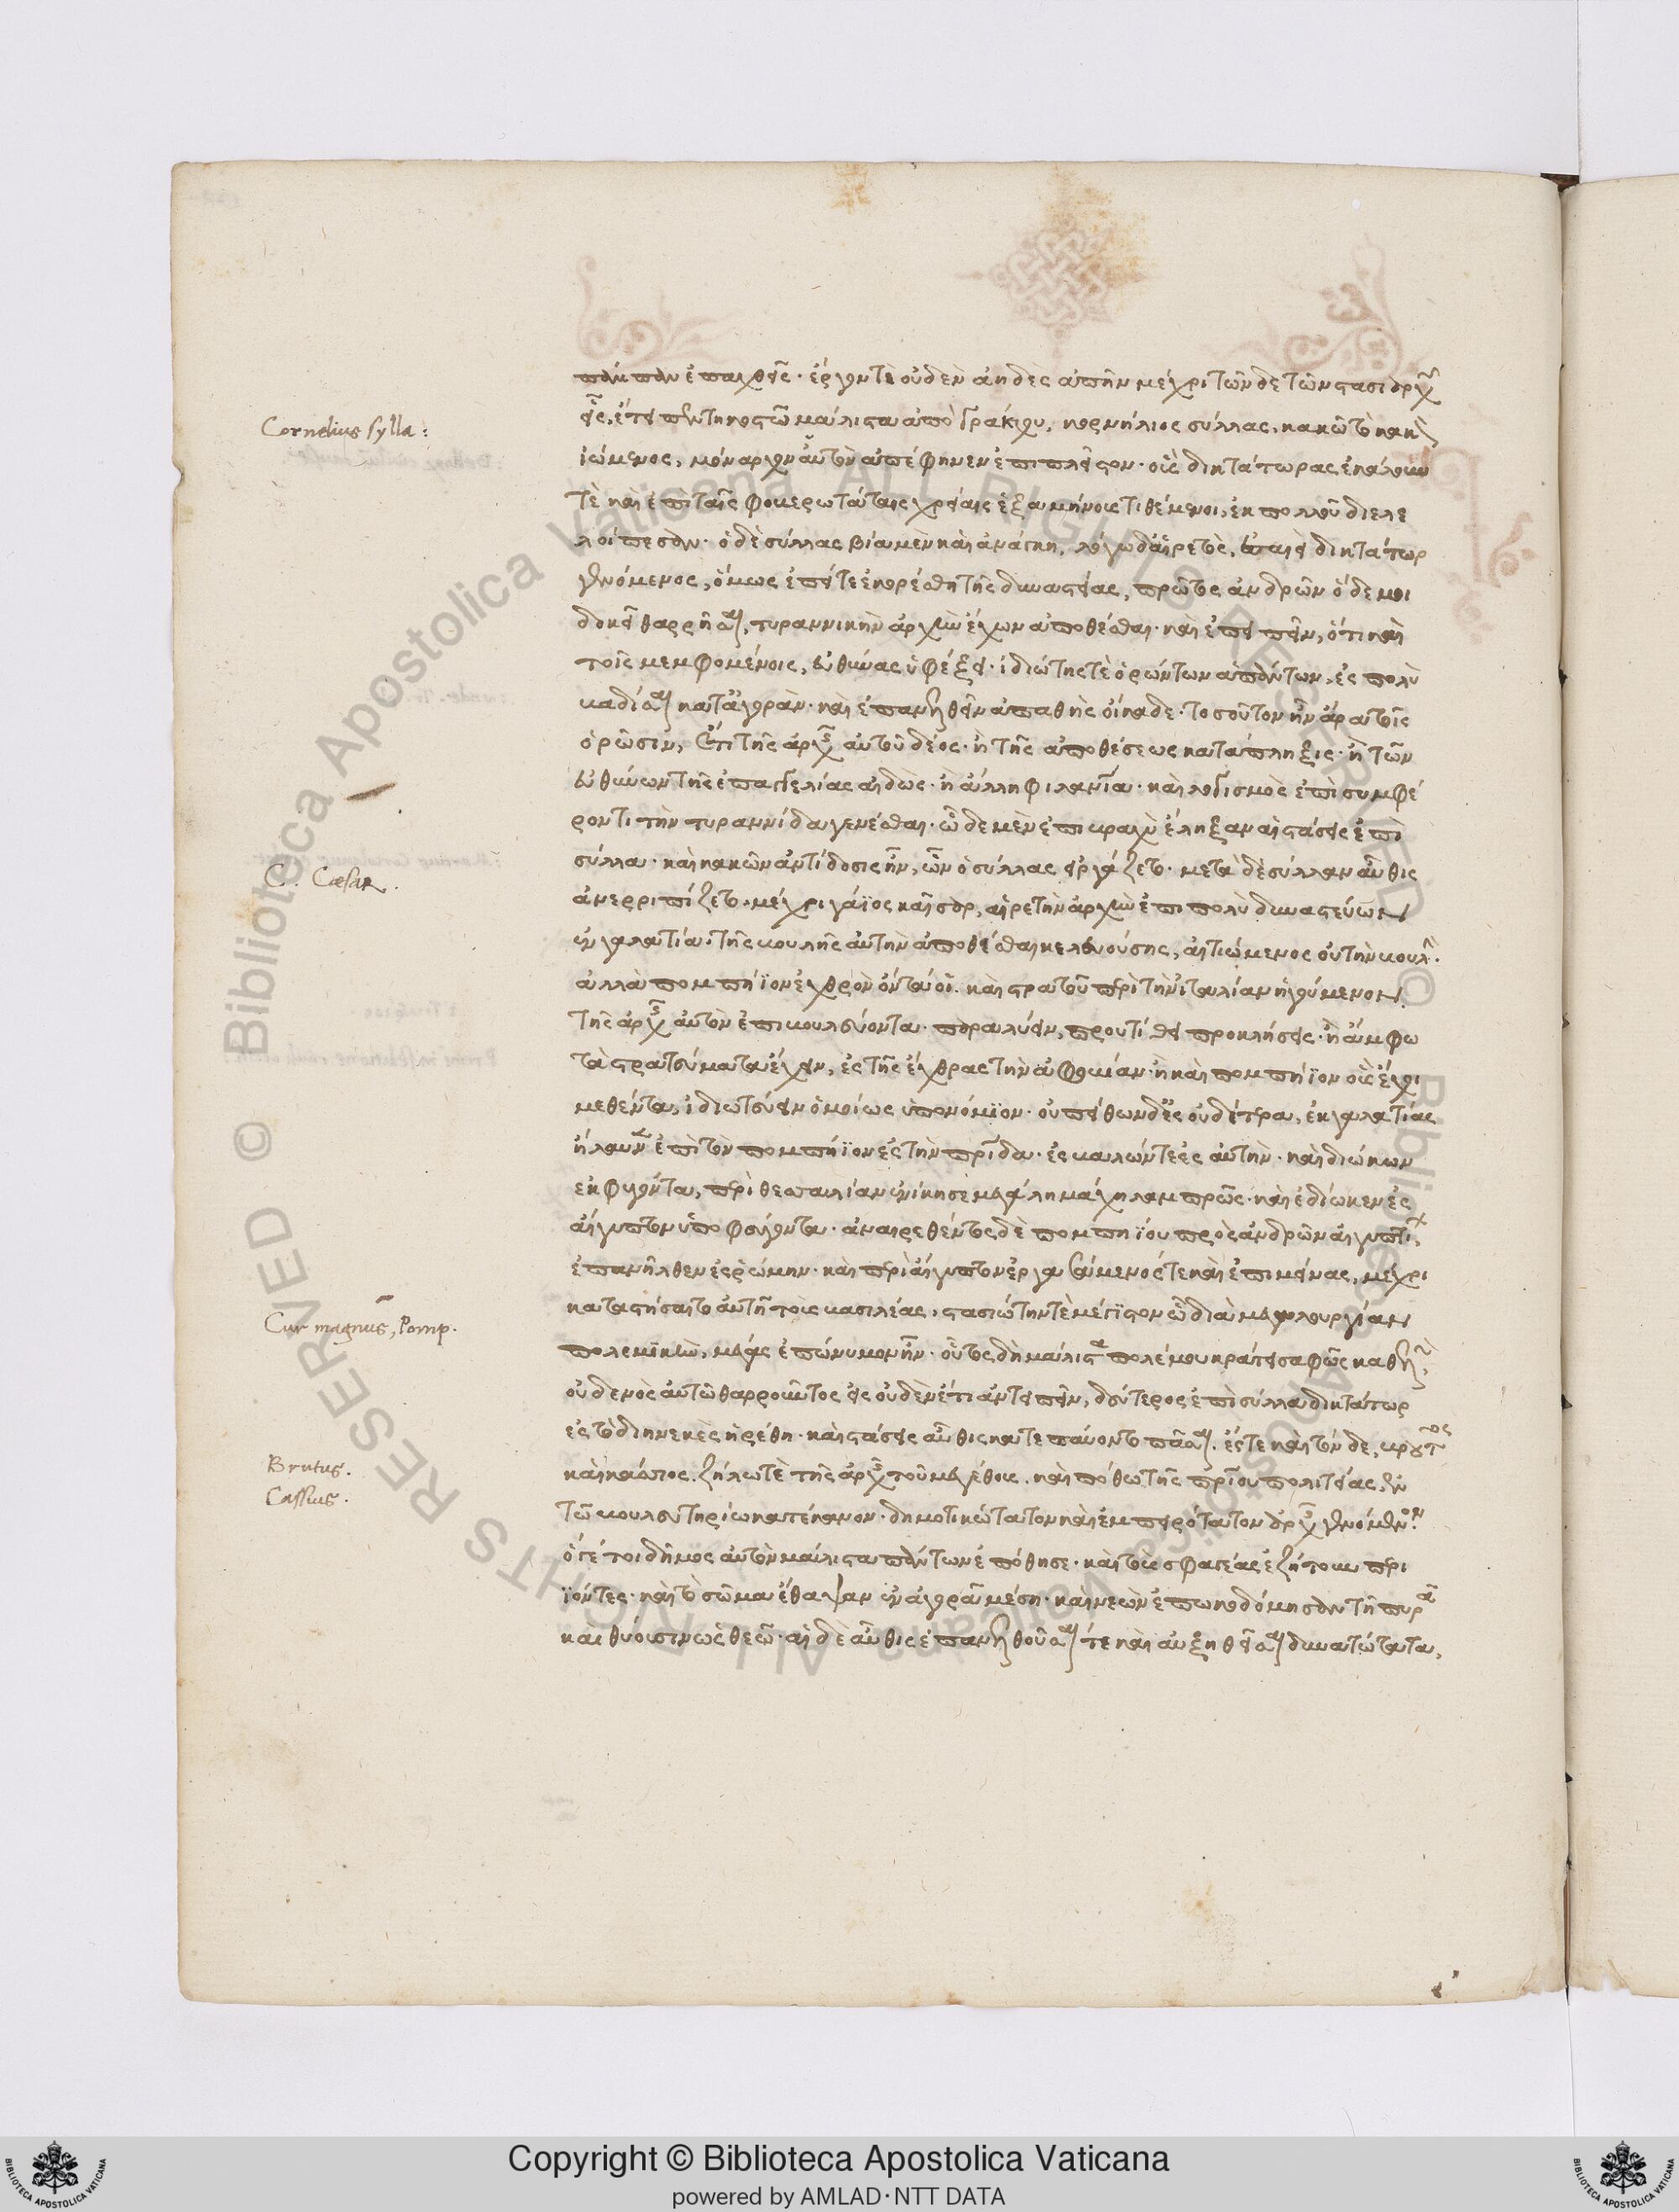 πάντων ἐπαχθές. ἔργον τε οὐδὲν ἀηδες ἀπῆν μέχρι τῶνδε τῶν στασιάρχων
εἷς, ἔτει πεντηκοστῶ μάλιστα ἀπὸ Γράκχου, κορνήλιος σύλλας, κακῶ τὸ κακὸν
ἰώμενος, μόναρχον αὑτὸν ἀπέφηνεν ἐπιπλεῖστον· οὓς δικτάτωρας ἐκάλουν
τὲ καὶ ἐπὶ ταῖς φοβερωτάταις χρείαις ἑξαμήνους τιθέμενοι, ἐκ πολλοῦ διελε
λοίπεσαν· ὁ δὲ σύλλας βία μὲν καὶ ἀνάγκη, λόγω δ' αἱρετὸς, ἐς αἰεὶ δικτάτωρ
γενόμενος, ὅμως ἐπείτε ἐκορέσθη τῆς δυναστείας, πρῶτος ἀνδρῶν ὅδε μοι
δοκεῖ θαρρῆσαι, τυραννικὴν ἀρχὴν ἔχων ἀποθέσθαι· καὶ ἐπειπεῖν, ὅτι καὶ
τοῖς μεμφομένοις, εὐθύνας ὑφέξει· ἰδιώτης τὲ ὁρώντων ἁπάντων, ἐς πολὺ
βαδίσαι κατὰ ἀγορὰν· καὶ ἐπανελθεῖν ἀπαθὴς οἴκαδε· τοσοῦτον ἦν ἄρα τοῖς
ὁρῶσιν, ἔτι τῆς ἀρχῆς αὐτοῦ δέος· ἢ τῆς ἀποθέσεως κατάπληξις· ἢ τῶν
εὐθύνων τῆς ἐπαγγελίας αἰδὼς· ἢ ἄλλη φιλανία· καὶ λογισμὸς ἐπὶ συμφέ
ροντι τὴν τυραννίδα γενέσθαι· ὧδε μὲν ἐπι βραχὺ ἔληξαν αἱ στάσεις ἐπὶ
σύλλα· καὶ κακῶν ἀντίδοσις ἦν, ὧν ὁ σύλλας εἰργάζετο· μετὰ δὲ σύλλαν αὖθις
ἀνερριπίζετο. μέχρι γάϊος καῖσαρ, αἱρετὴν ἀρχὴν ἐπιπολὺ δυναστεύων
ἐν γαλατία· τῆς βουλῆς αὐτὴν ἀποθέσθαι κελευούσης, αἰτιώμενος οὐ τὴν βουλὴν.
ἀλλὰ πομπήϊον ἐχθρὸν ὄντα οἱ· καὶ στρατοῦ περὶ τὴν ἰταλίαν ἡγούμενον
τῆς ἀρχῆς αὐτὸν ἐπιβουλεύοντα· παραλύειν, προυτίθει προκλήσεις· ἢ ἄμφω
τὰ στρατεύματα ἔχειν, ἐς τῆς ἔχθρας τὴν ἀφοβίαν· ἢ καὶ πομπήϊον οὓς ἔχοι
μεθέντα, ἰδιωτεύειν ὁμοίως ὑπὸ νόμοις. οὐ πείθων δ' ἐς οὐδέτερα, ἐκ γαλατίας
ἤλαυνεν ἐπὶ τὸν πομπήϊον ἐς τὴν πατρίδα· ἐσβαλών τε ἐς αὐτὴν· καὶ διώκων
ἐκφυγόντα, περὶ θεσσαλίαν ἐνίκησε μεγάλη μάχη λαμπρῶς· καὶ ἐδίωκεν ἐς
αἴγυπτον ὑποφεύγοντα· ἀναιρεθέντος δὲ πομπηίου πρὸς ἀνδρῶν αἰγυπτίων,
ἐπανῆλθεν ἐς ῥώμην· καὶ περὶ αἴγυπτον ἐργασάμενός τε καὶ ἐπιμείνας, μέχρι
καταστήσαιτο αὐτῆ τοὺς βασιλέας, στασιώτην τὲ μέγιστον ὧ διὰ μεγαλουργίαν
πολεμικὴν, μέγας ἐπώνυμον ἦν· οὗτος δὴ μάλιστα πολέμου κράτει σαφῶς καθελὼν,
οὐδενὸς αὐτῶ θαρροῦντος ἐς οὐδὲν ἔτι ἀντειπεῖν, δεύτερος ἐπὶ σύλλα δικτάτωρ
ἐς τὸ διηνεκὲς ἡρέθη· καὶ στάσεις αὖθις κατεπαύοντο πᾶσαι. ἔστε καὶ τόνδε, βροῦτος
καὶ κάσσιος. ζήλω τὲ τῆς ἀρχῆς τοῦ μεγέθους. καὶ πόθω τῆς πατρίου πολιτείας, ἐν
τῶ βουλευτηρίω κατέκανον· δημοτικώτατον καὶ ἐμπειρότατον ἀρχῆς γενόμενον.
ὅ γέ τοι δῆμος αὐτὸν μάλιστα πάντων ἐπόθησε· καὶ τοὺς σφαγέας ἐζήτουν περι
ϊόντες· καὶ τὸ σῶμα ἔθαψαν ἐν ἀγορᾶ μέση· καὶ νεὼν ἐπωκοδόμησαν τῆ πυρᾶ
καὶ θύουσιν ὡς θεῶ· αἱ δὲ αὖθις ἐπανελθοῦσαι τε καὶ αὐξηθεῖσαι δυνατώτατα,
Cornelius sylla:
C. Cæsar.
Cur magnus, Pomp.
Brutus.
Cassius.
Copyright © Biblioteca Apostolica Vaticana
powered by AMLAD·NTT DATA
BIBLIOTECA APOSTOLICA VATICANA
BIBLIOTECA APOSTOLICA VATICANA
Biblioteca Apostolica Vaticana ALL RIGHTS RESERVED ©
Biblioteca Apostolica Vaticana ALL RIGHTS RESERVED ©